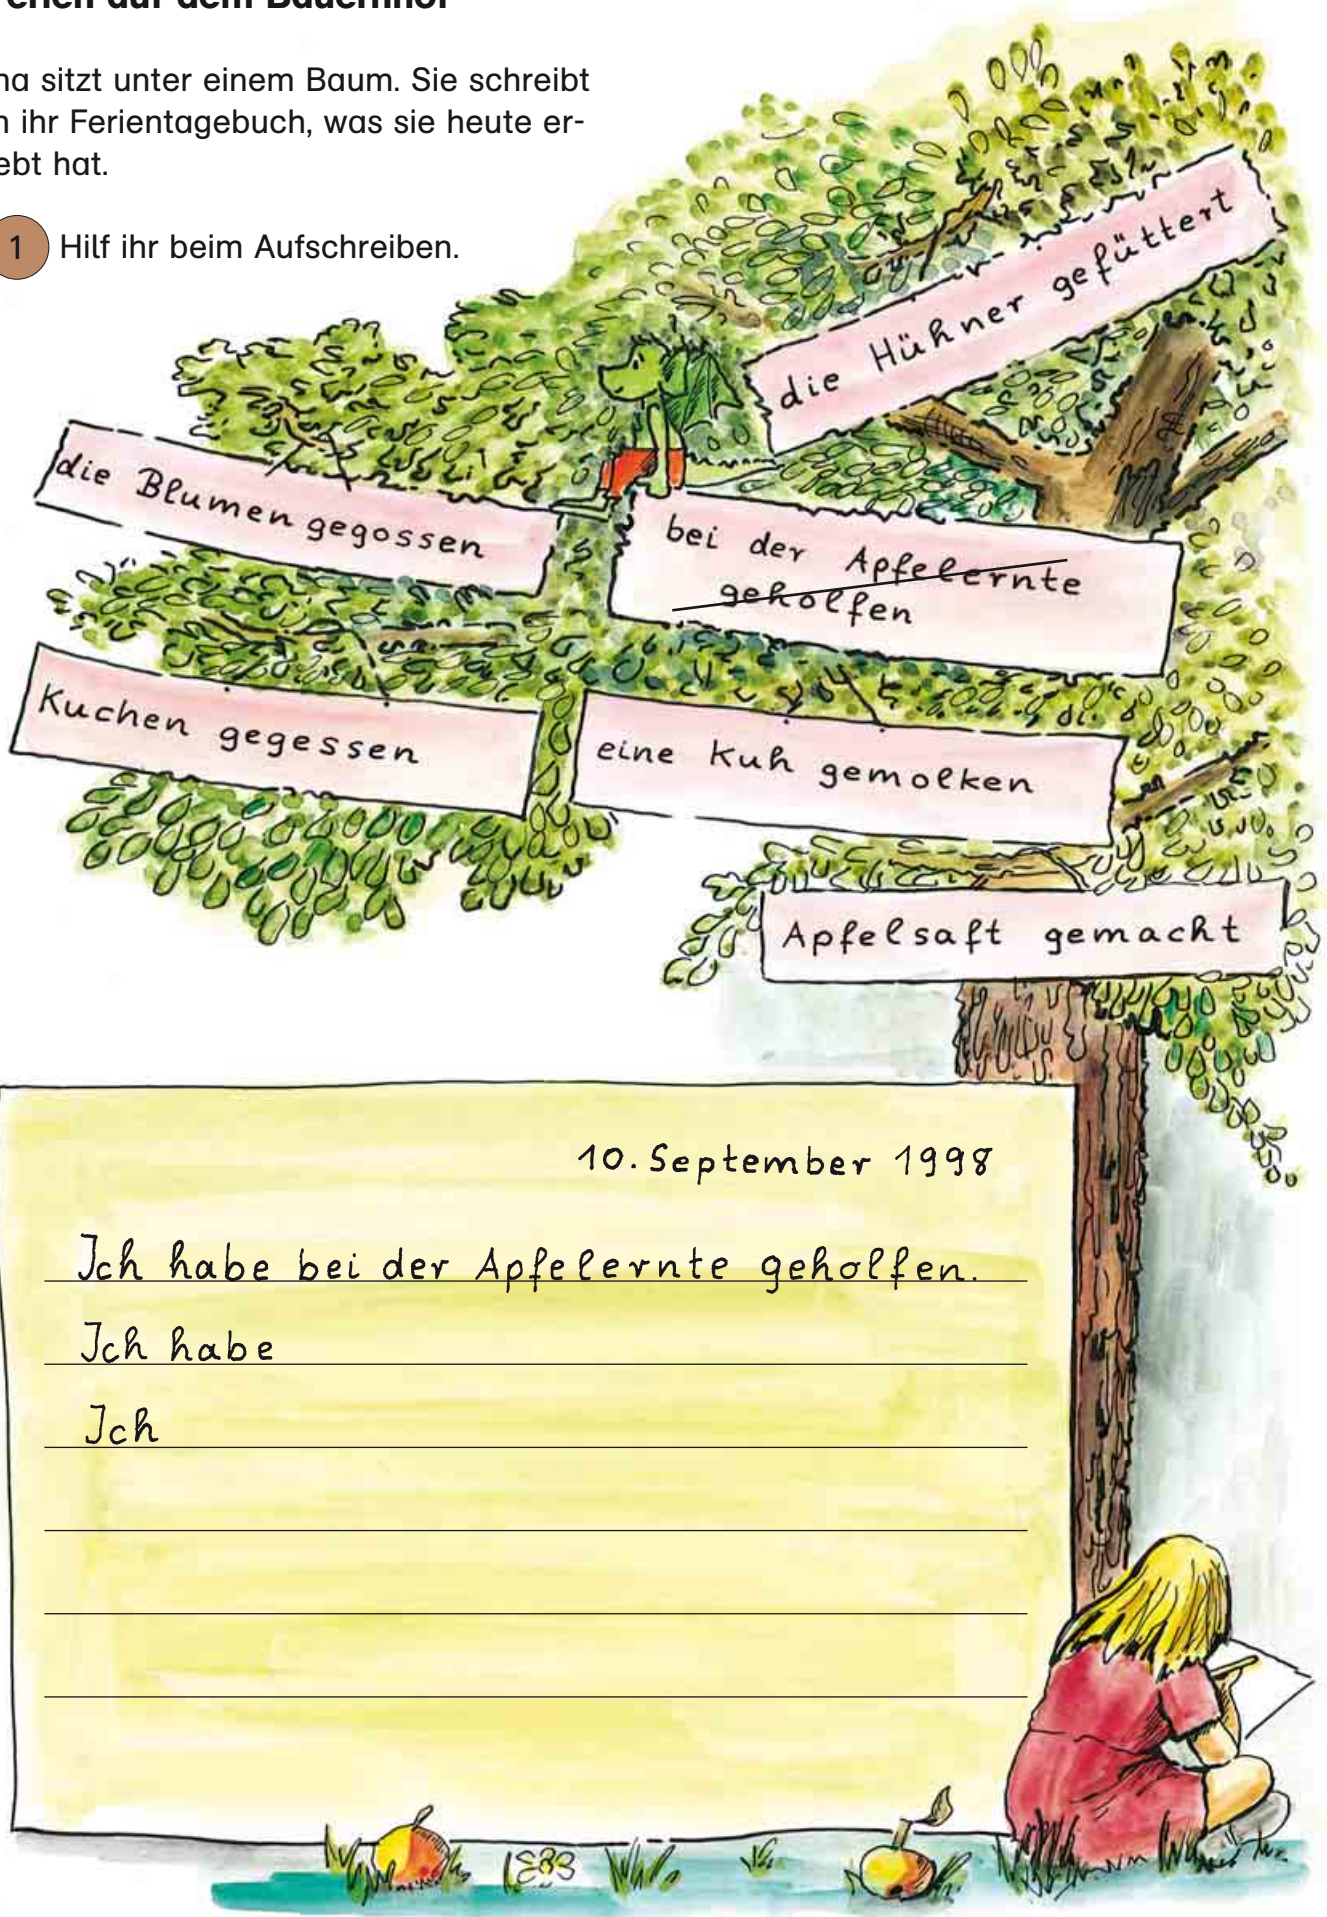 auf dem Bauernhof
sitzt unter einem Baum. Sie schreibt
ihr Ferientagebuch, was sie heute er-
hat.
1 Hilf ihr beim Aufschreiben.
die Hühner gefüttert
die Blumen gegossen
bei der Apfelernte
geholfen
Kuchen gegessen
eine Kuh gemolken
Apfelsaft gemacht
10. September 1998
Ich habe bei der Apfelernte geholfen.
Ich habe
Ich